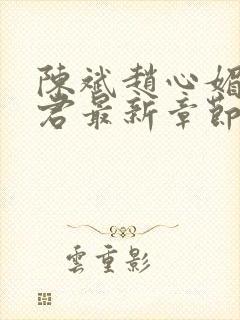 陳斌趙心媚
君最新章節
雲重影